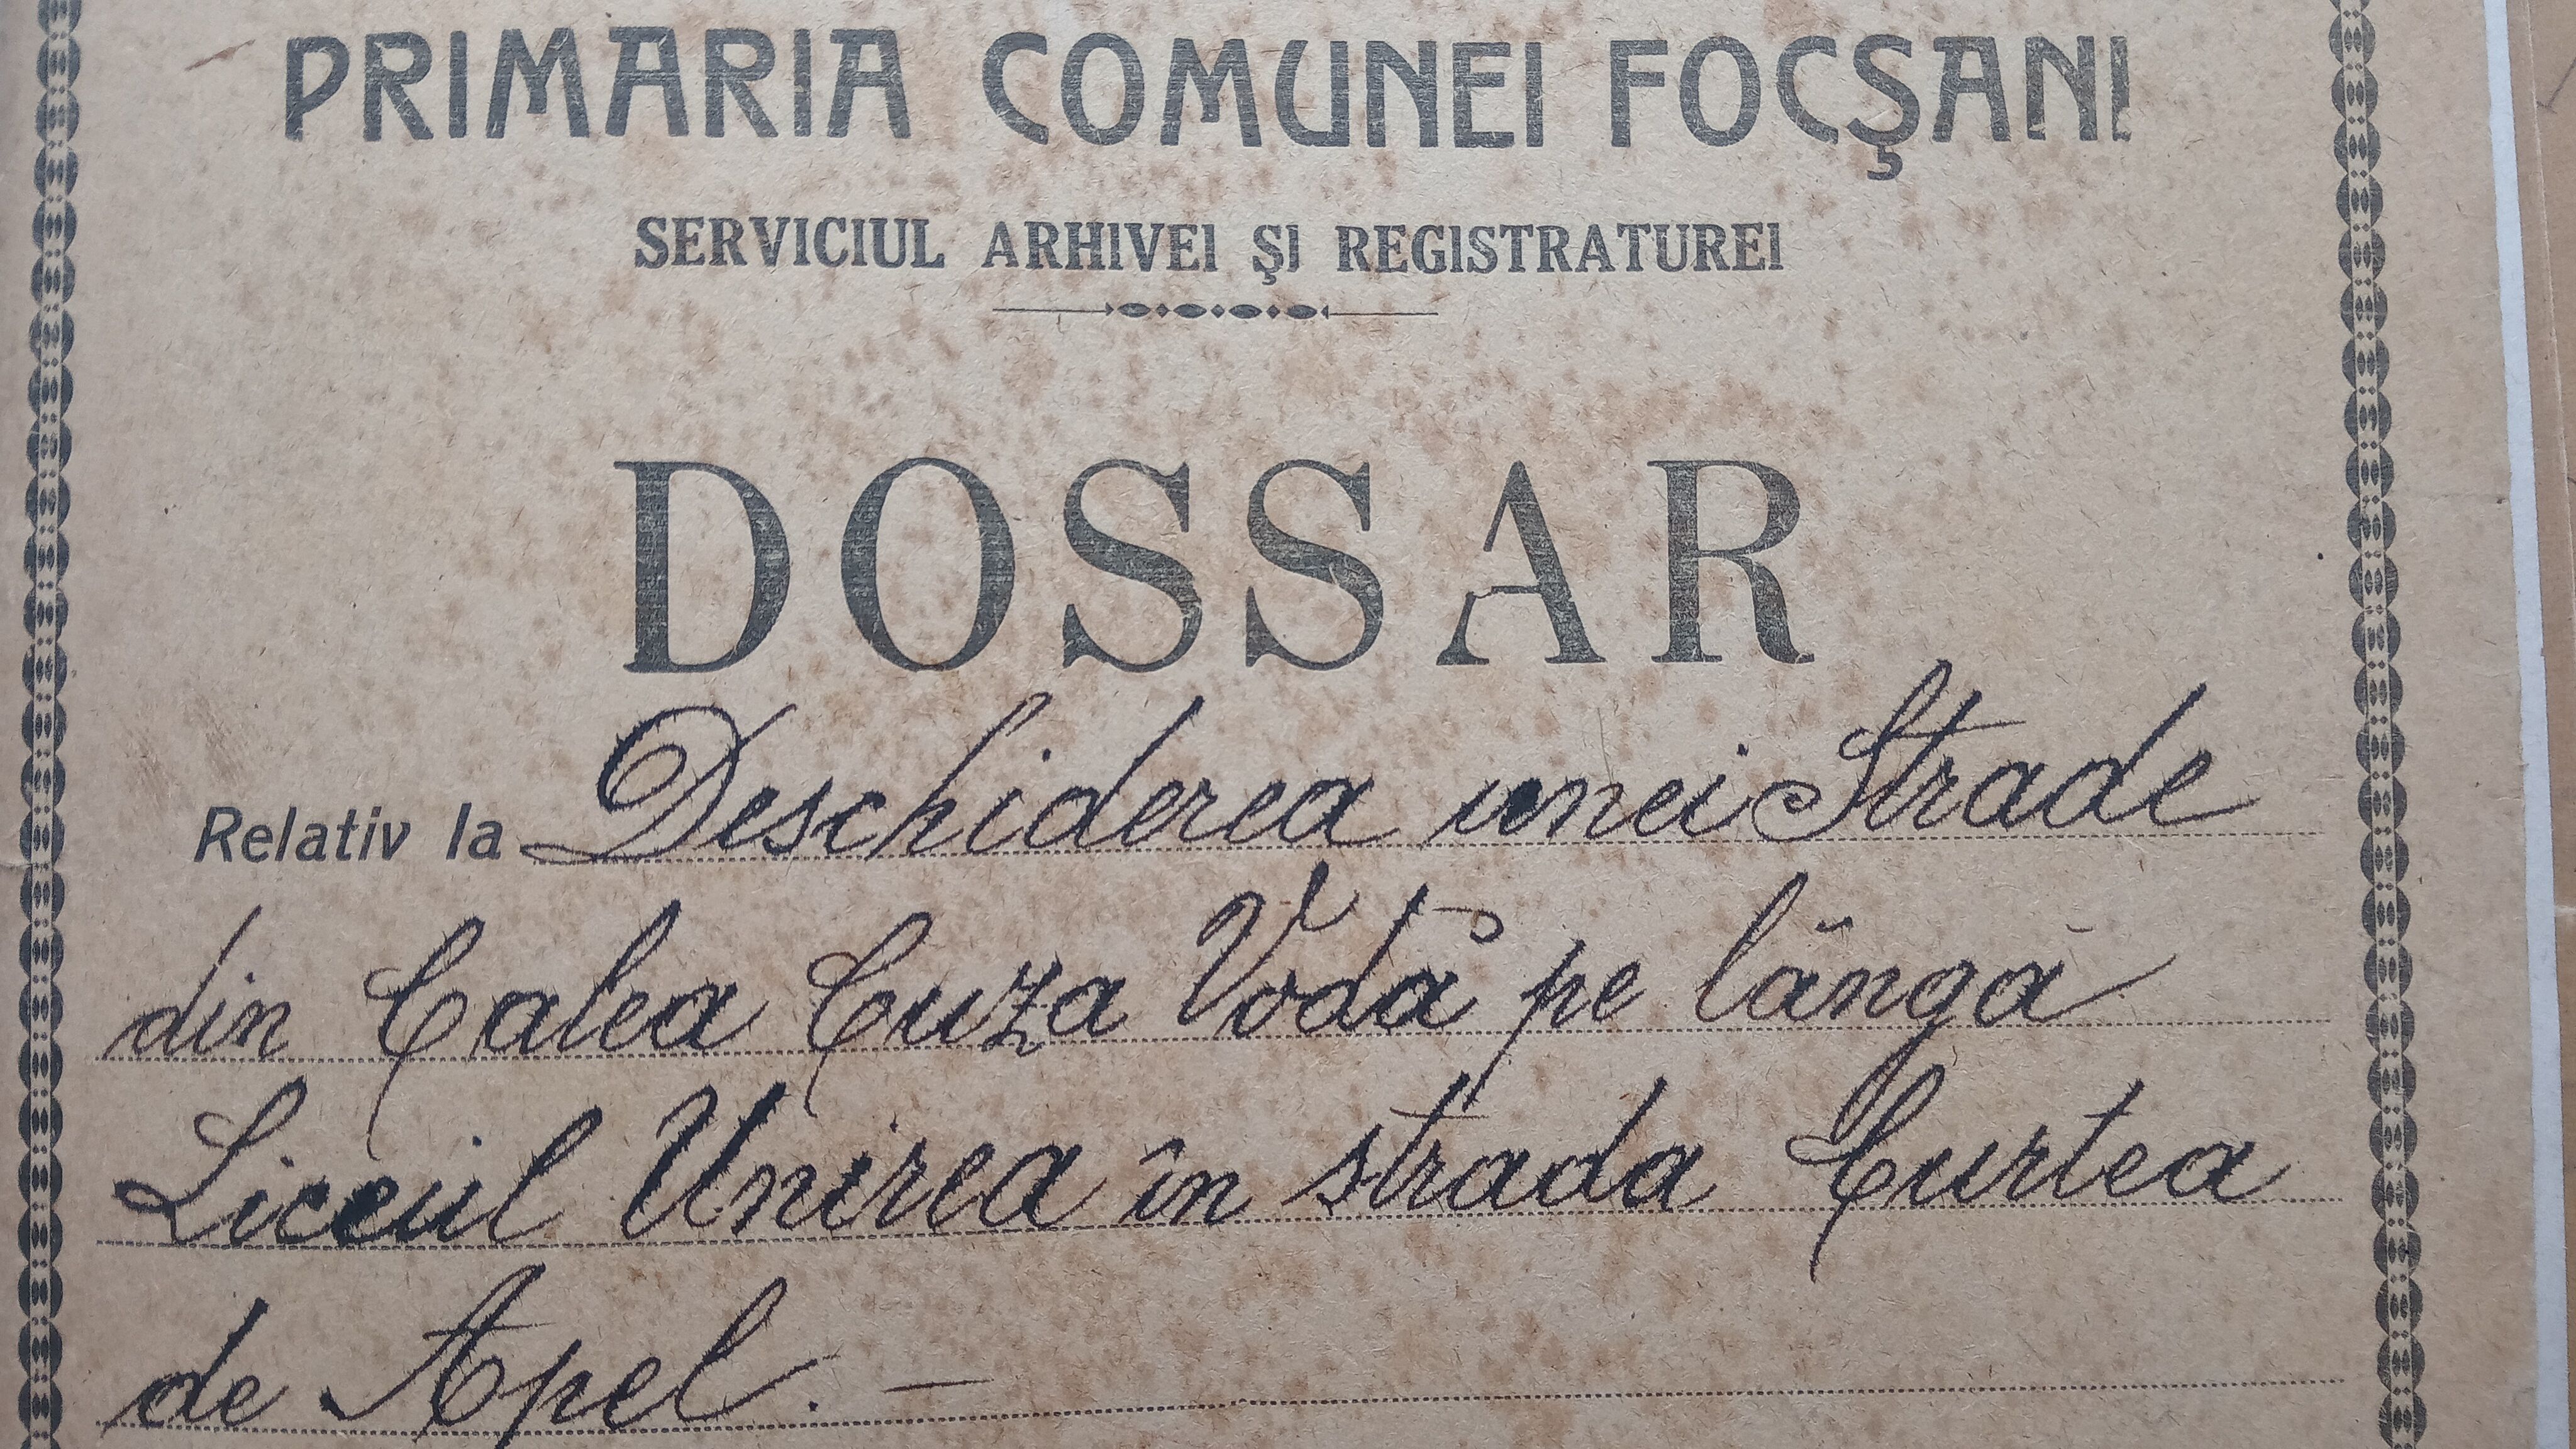 PRIMARIA COMUNEI FOCŞANI
SERVICIUL ARHIVEI ŞI REGISTRATUREI
DOSSAR
Relativ la Deschiderea unei Strade
din Calea Cuza Vodă pe lângă
Liceul Unirea în strada Curtea
de Apel. —